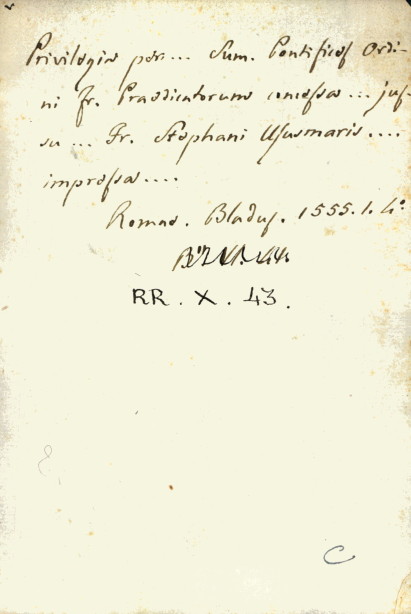 Privilegia per... Sum. Pontifices Ordi-
ni Fr. Praedicatorum concessa... jus-
su... Fr. Stephani Ususmaris....
impressa....
Romae. Bladus. 1555. l. 4°
RR. X. 43.
C